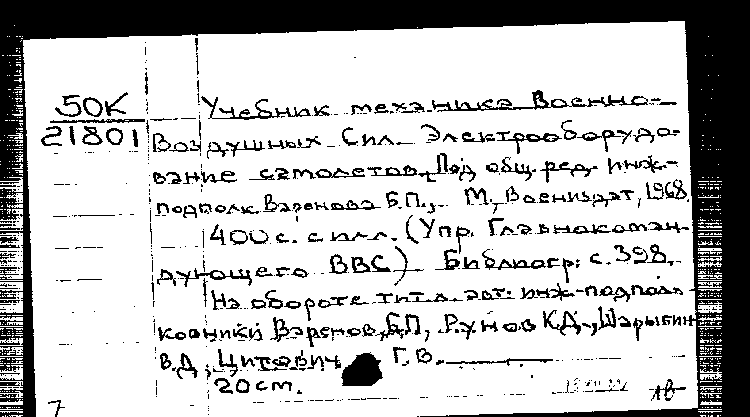 50К
21801
Учебник механика Военно-
Воздушных Сил. Электрооборудо-
вание самолетов. Под общ. ред. инж.-
подполк. Варенова Б.П., М., Воениздат, 1968.
400 с. с илл. (Упр. Главнокоман-
дующего ВВС) Библиогр.: с. 398.
На обороте тит. л. авт: инж.-подпол-
ковники Варенов, Б.П., Рунов К.Д., Шарыгин
В.Д., Цитович Г.В.
20 cm.
7
1в